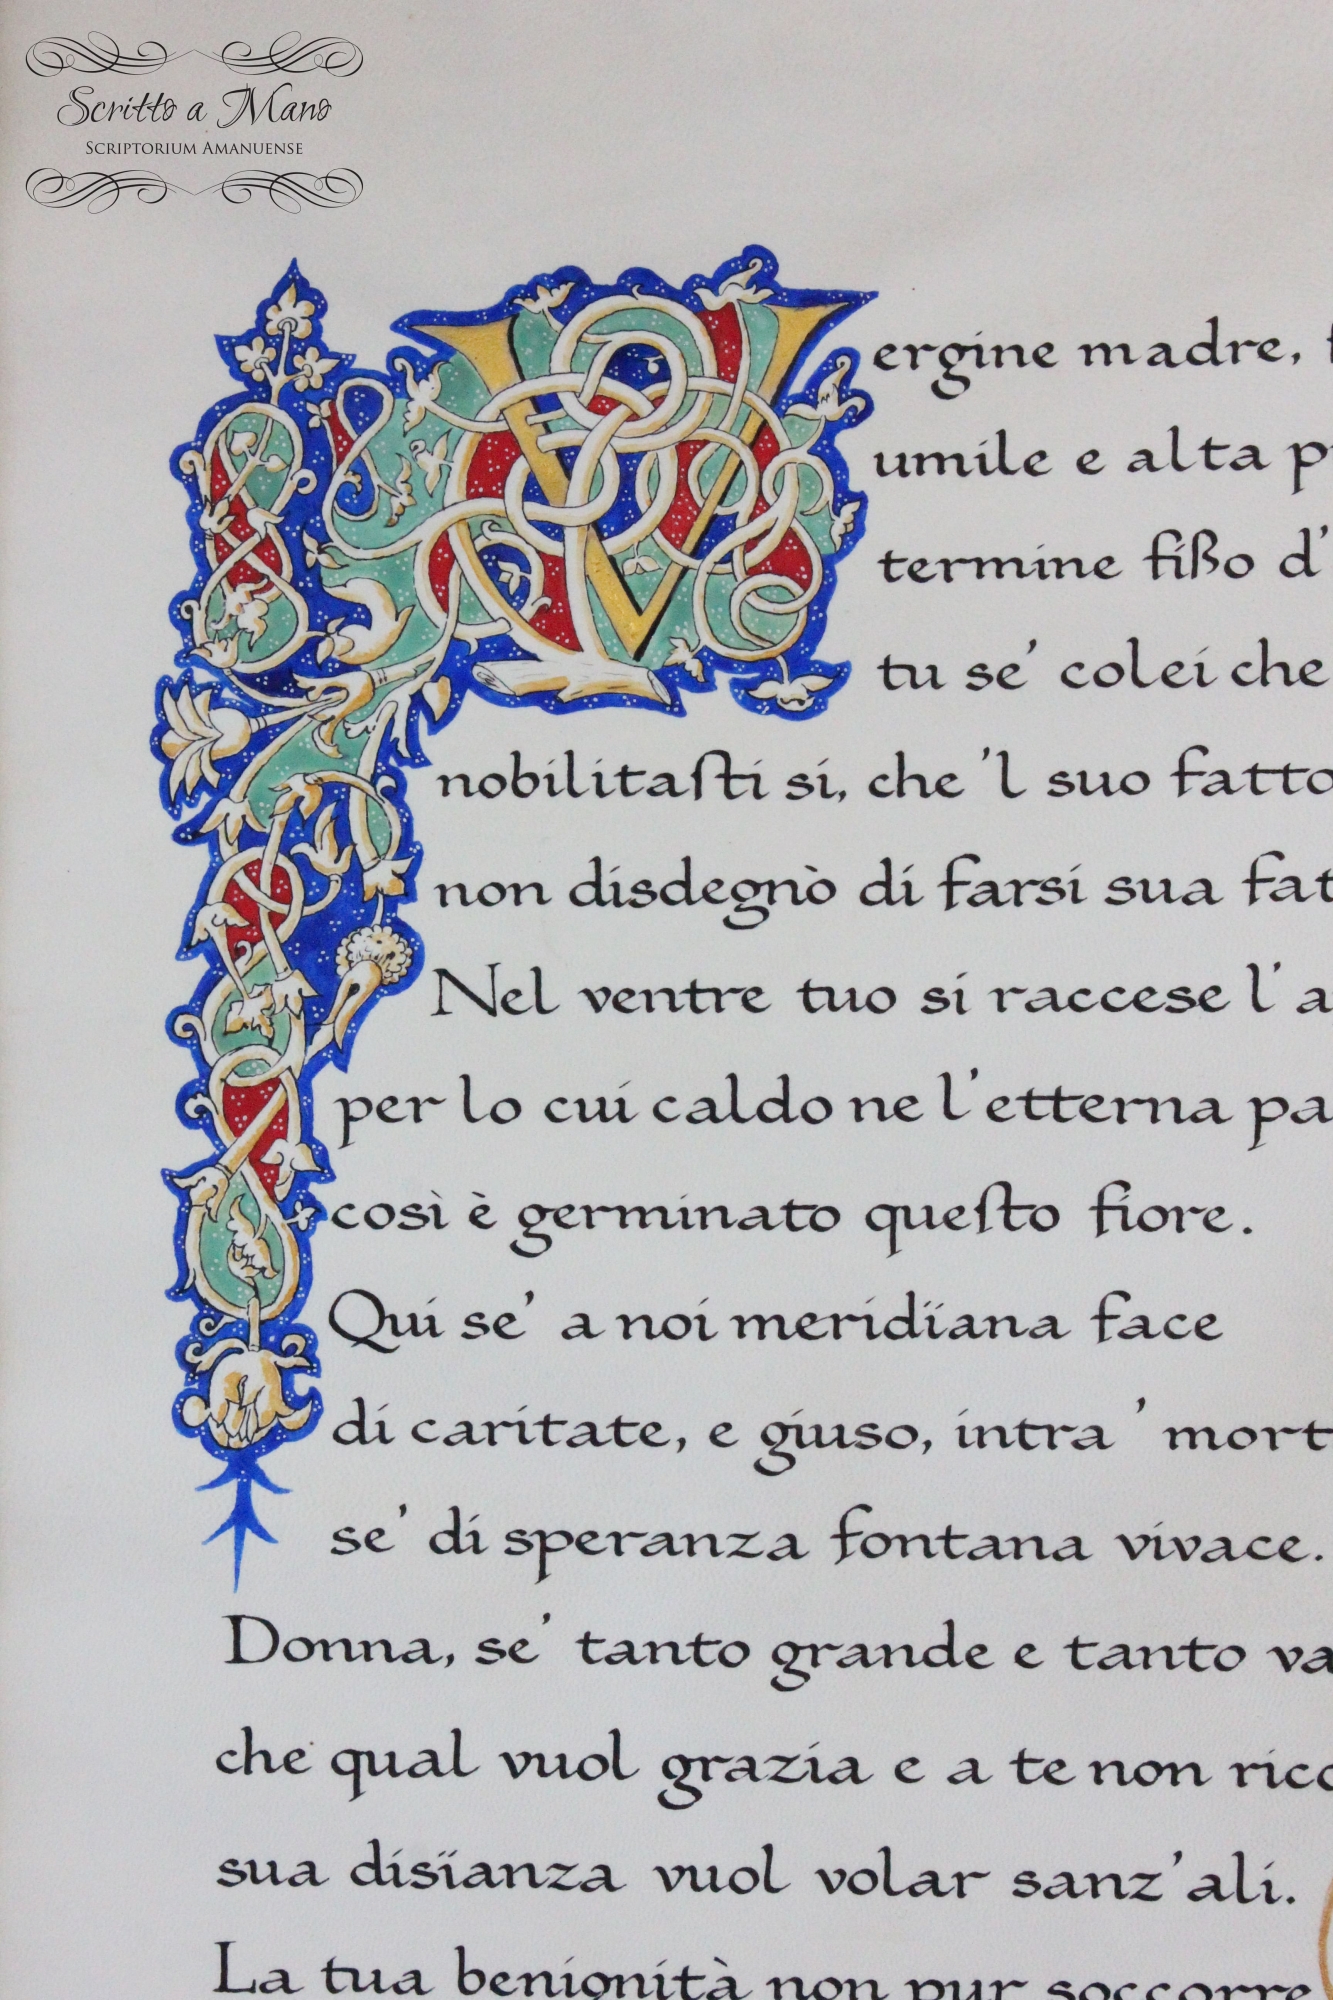 Scritto a Mano
SCRIPTORIUM AMANUENSE
Vergine madre,
umile e alta
termine fißo d'
tu se' colei che
nobilitaſti si, che 'l suo fatto
non disdegnò di farsi sua fat
Nel ventre tuo si raccese l'a
per lo cui caldo ne l'etterna pa
così è germinato queſto fiore.
Qui se' a noi meridïana face
di caritate, e giuso, intra ' mort
se' di speranza fontana vivace.
Donna, se' tanto grande e tanto va
che qual vuol grazia e a te non rico
sua disïanza vuol volar sanz'ali.
La tua benignità non pur soccorre